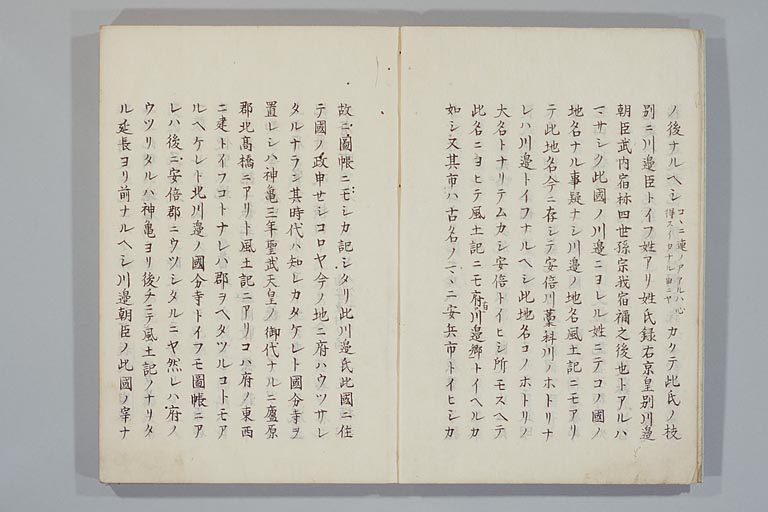 ノ後ナルヘシ コヽニ連ノアアルハ心 カクテ此氏ノ枝
別ニ川邉臣トイフ姓アリ姓氏録右京皇別川邉
朝臣武内宿祢四世孫宗我宿禰之後也トアルハ
マサシク此國ノ川邉ニヨレル姓ニテコノ國ノ
地名ナル事疑ナシ川邉ノ地名風土記ニモアリ
テ此地名今ニ存シテ安倍川藁科川ノホトリナ
レハ川邉トイフナルヘシ此地名コノホトリノ
大名トナリテムカシ安倍トイヒシ所モスヘテ
此名ニヨヒテ風土記ニモ府川邉郷トイヘルカ
如シ又其市ハ古名ノマヽニ安兵市トイヒシカ
故ニ圖帳ニモシカ記シタリ此川邉氏此國ニ住
テ國ノ政申セシコロヤ今ノ地ニ府ハウツサレ
タルナラン其時代ハ知レカタケレト國分寺ヲ
置レシハ神亀三年聖武天皇ノ御代ナルニ廬原
郡北髙橋ニアリト風土記ニアリコハ府ノ東西
ニ建トイフコトナレハ郡ヲヘタツルコトモア
ルヘケレト北川邉ノ國分寺トイフモ圖帳ニア
レハ後ニ安倍郡ニウツシタルニヤ然レハ府ノ
ウツリタルハ神亀ヨリ後チニテ風土記ノナリタ
ル延長ヨリ前ナルヘシ川邉朝臣ノ此國ノ宰ナ